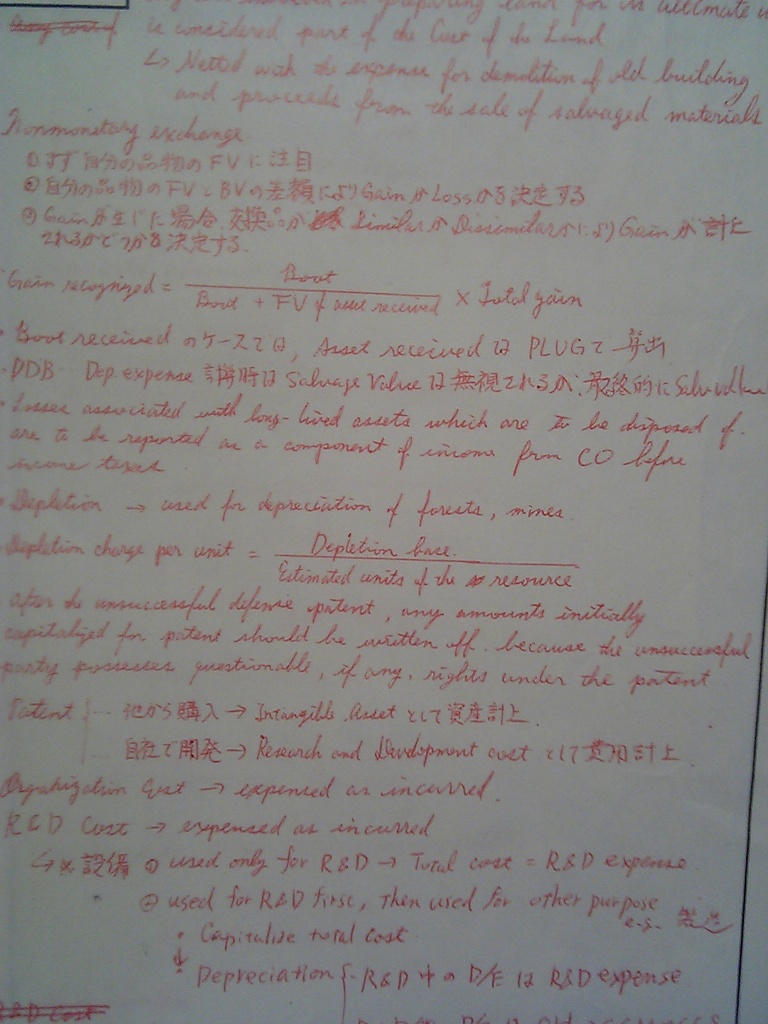 preparing land for its ultimate
is considered part of the Cost of the Land
↳ Netted with the expense for demolition of old building
and proceeds from the sale of salvaged materials
Nonmonetary exchange
① まず自分の品物のFVに注目
② 自分の品物のFVとBVの差額によりGainかLossかを決定する
③ Gainが生じた場合、交換品が SimilarかDissimilarかによりGainが計上
されるかどうかを決定する.
Gain recognized = Boot
Boot + FV of asset received × Total gain
・Boot receivedのケースでは, Asset receivedはPLUGで算出
・DDB Dep. expense 計算時はSalvage Valueは無視されるが、最終的に
・Losses associated with long-lived assets which are to be disposed of.
are to be reported as a component of income from CO before
income taxes
・Depletion → used for depreciation of forests, mines.
Depletion charge per unit = Depletion base.
Estimated units of the resource
After the unsuccessful defense patent, any amounts initially
capitalized for patent should be written off. because the unsuccessful
party possesses questionable, if any, rights under the patent
Patent { … 他から購入 → Intangible Assetとして資産計上.
… 自社で開発 → Research and Development costとして費用計上.
Organization Cost → expensed as incurred.
R&D Cost → expensed as incurred
↳ ※設備 ① used only for R&D → Total cost = R&D expense
② used for R&D first, then used for other purpose
e.g. 製造
・Capitalize total cost
↓
・Depreciation { ・R&D中のD/EはR&D expense
R&D Cost